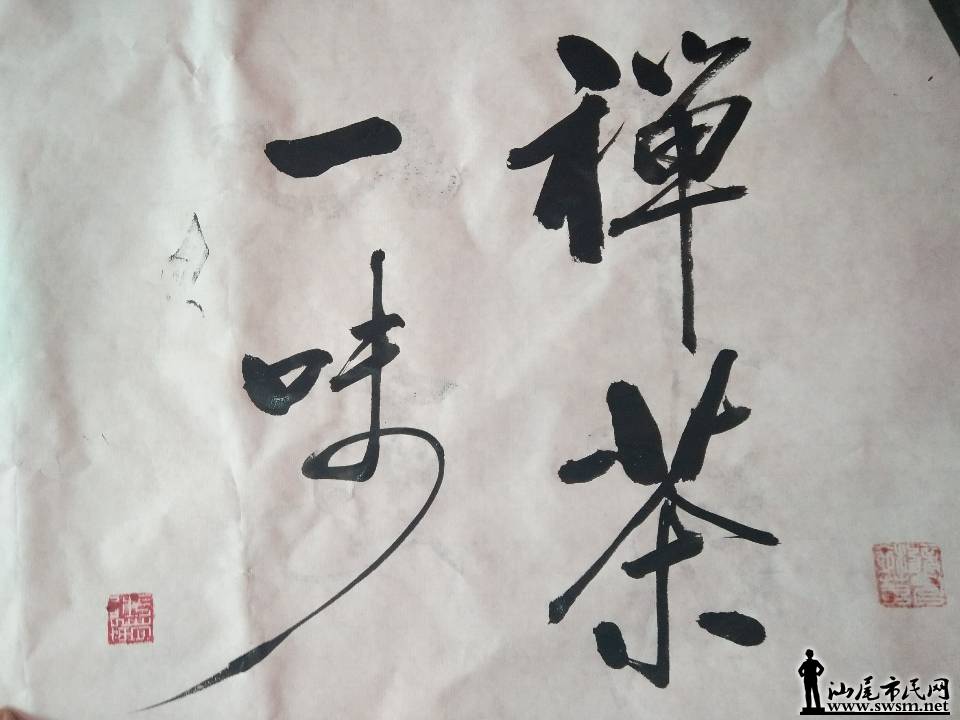 禅茶
一味
汕尾市民网
www.swsm.net